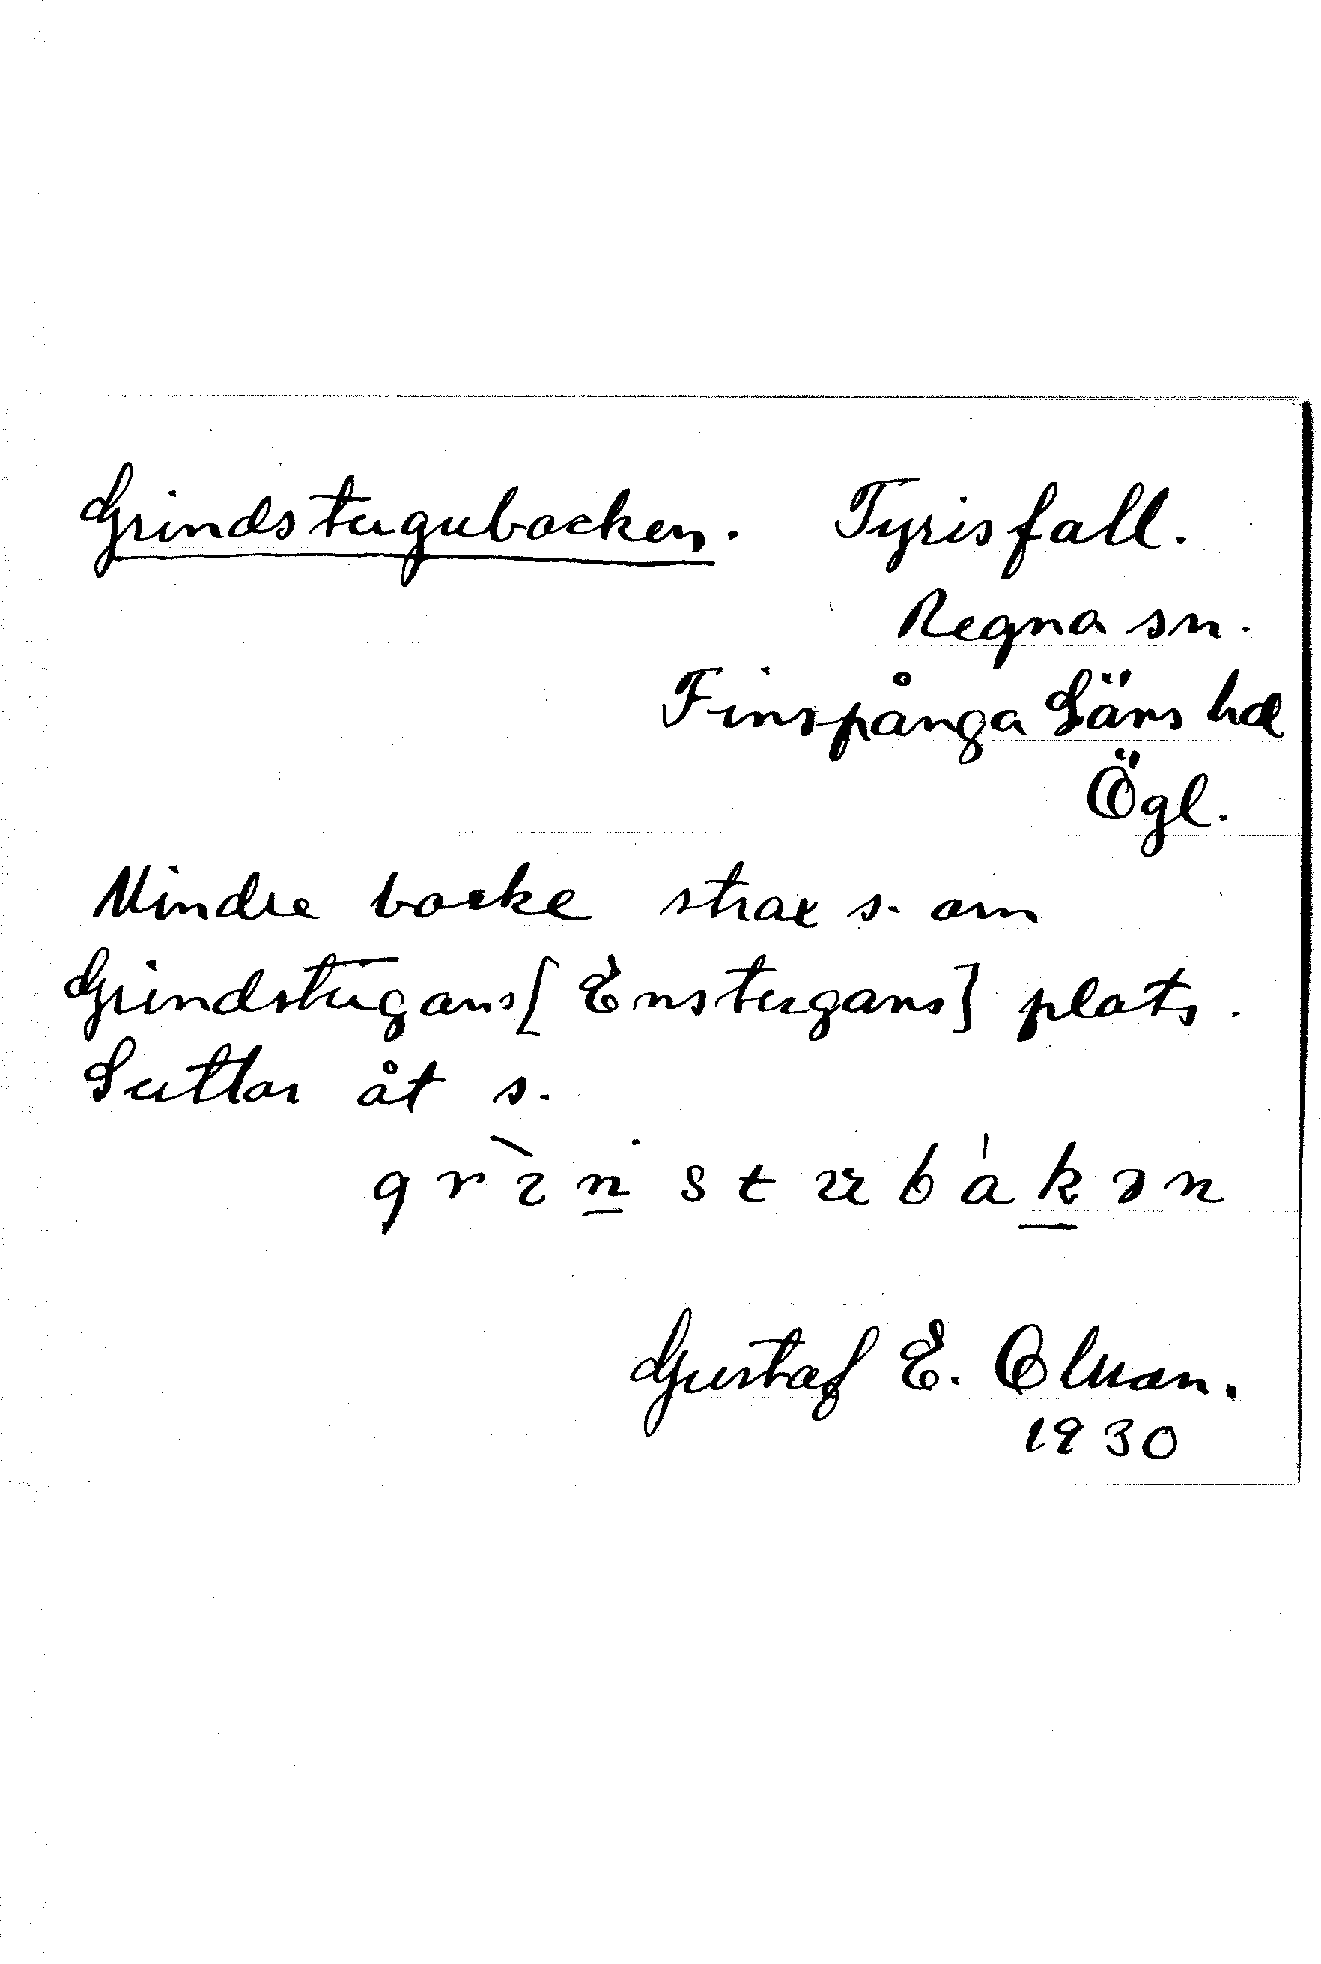 Grindstugubacken. Tyrisfall.
Regna sn.
Finspånga Läns hd
Ögl.
Mindre backe strax s. om
Grindstugans [Enstugans] plats.
Luttar åt s.
Gustaf E. Olman.
1930